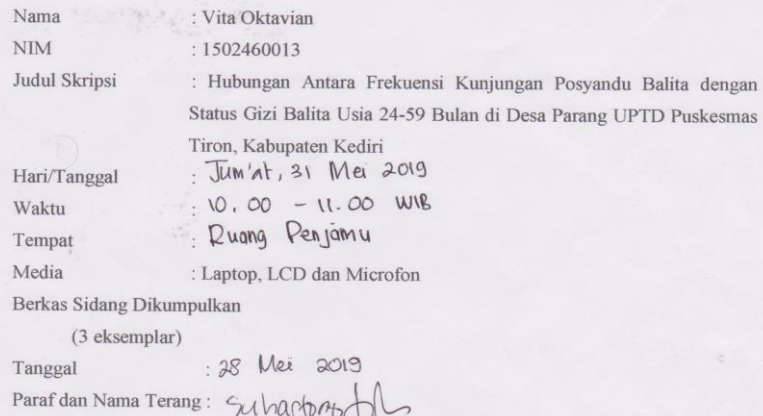 Nama : Vita Oktavian
NIM : 1502460013
Judul Skripsi : Hubungan Antara Frekuensi Kunjungan Posyandu Balita dengan
Status Gizi Balita Usia 24-59 Bulan di Desa Parang UPTD Puskesmas
Tiron, Kabupaten Kediri
Hari/Tanggal : Jum'at, 31 Mei 2019
Waktu : 10.00 - 11.00 WIB
Tempat : Ruang Penjamu
Media : Laptop, LCD dan Microfon
Berkas Sidang Dikumpulkan
(3 eksemplar)
Tanggal : 28 Mei 2019
Paraf dan Nama Terang :